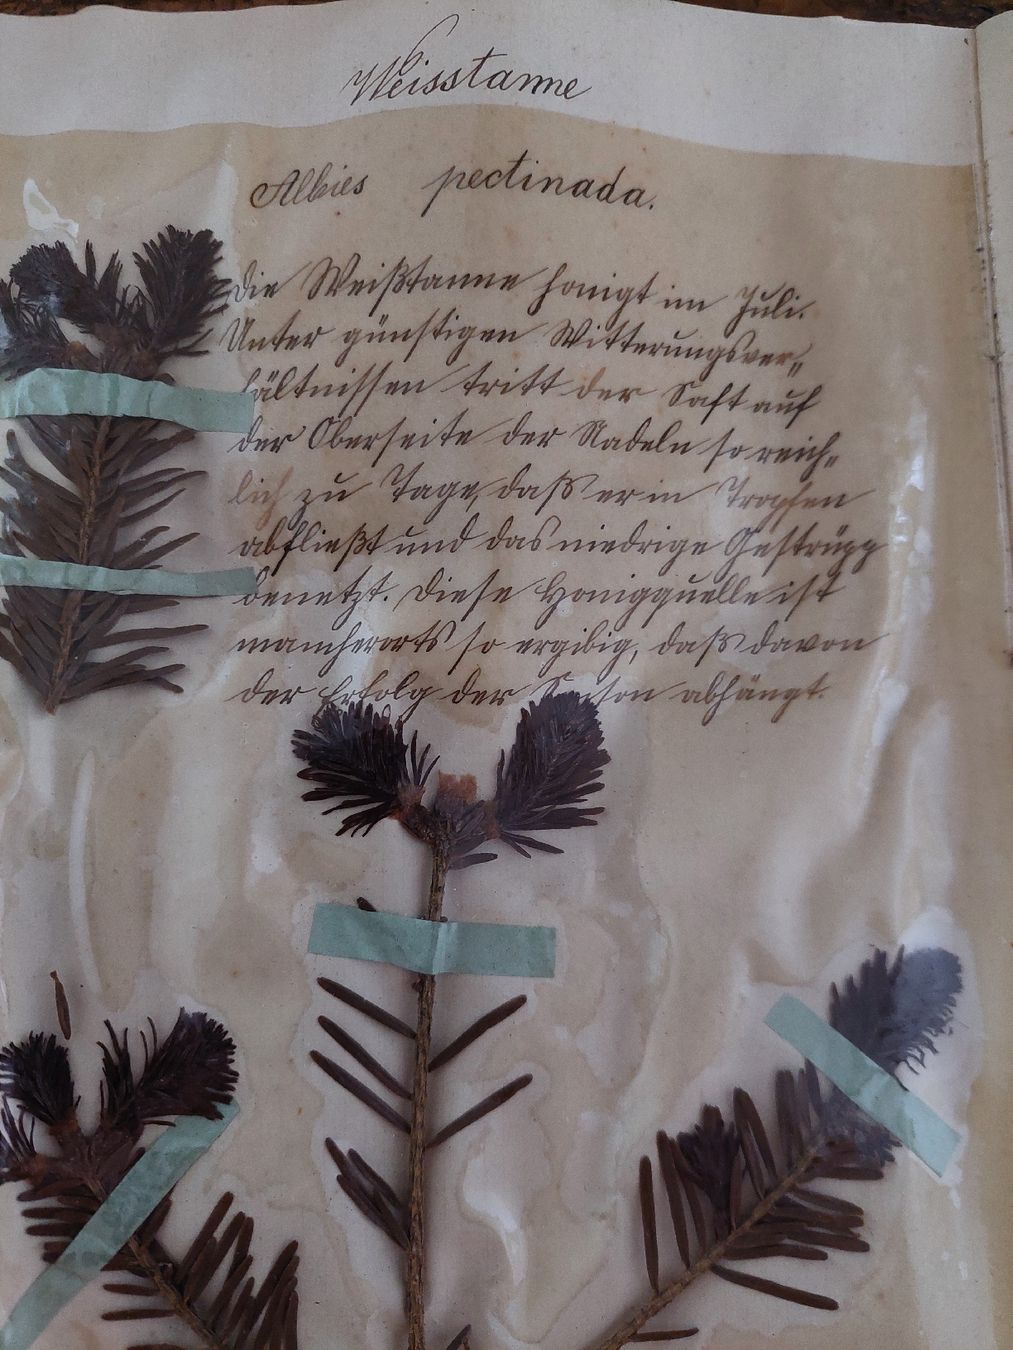 Weisstanne
Albies pectinada.
Die Weißtanne honigt im Juli.
Unter günstigen Witterungsver„
hältnissen tritt der Saft auf
der Oberseite der Nadeln so reich„
lich zu Tage, daß er in Tropfen
abfließt und das niedrige Gestrüpp
benetzt. Diese Honigquelle ist
mancherorts so ergibig, daß davon
der Erfolg der Saison abhängt.